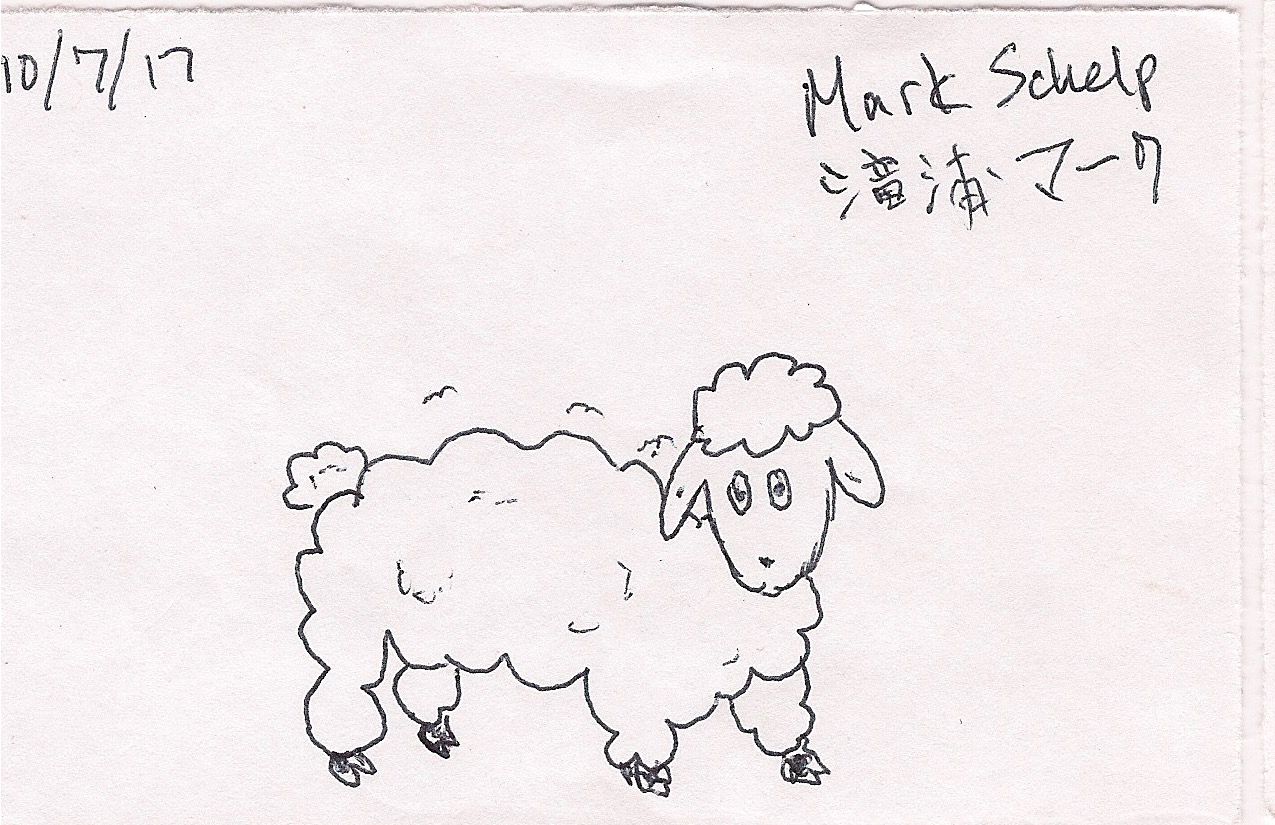 10/7/17
Mark Schelp
マーク